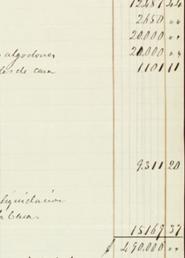 12481 44
2650 "
20.000 "
algodones 20.000 "
de casa 1101 11
9.311 20
liquidacion
15169 37
$ 290.000 "